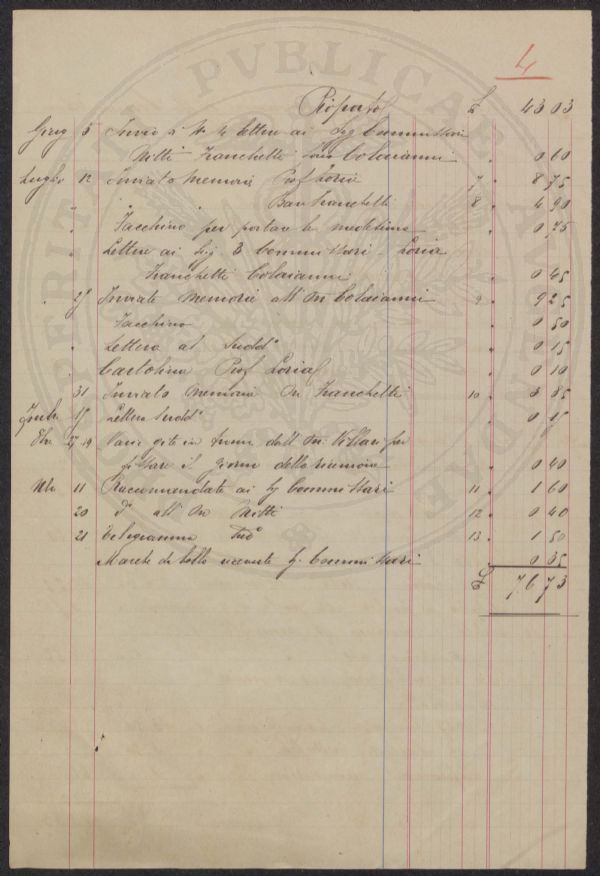 4
Riporto £ 43 03
Giug 5 Invio di N. 4 lettere ai Sig Commissari
Nitti Franchetti Loria Colaianni " 0 60
Luglio 12 Inviato Memorie Prof Loria 7 " 8 75
" " " Bar Franchetti 8 " 4 90
" Facchino per portare le medesime " 0 75
" Lettere ai Sig 3 Commissari Loria
Franchetti Colaianni " 0 45
" 27 Inviate Memorie all'On Colaianni 9 " 9 25
" Facchino " 0 50
" Lettera al Sudd° " 0 15
" Cartolina Prof Loria " 0 10
31 Inviato Memorie On Franchetti 10 " 3 85
15 Lettera Sudd° " 0 15
27 19 Varie gite in dell'On. Villari per
fissare il giorno della riunione " 0 40
11 Raccomandate ai Sig Commissari 11 " 1 60
20 d° all'On Nitti 12 " 0 40
21 Telegramma 13 " 1 50
Marche da bollo ricevute Sig. Commissari " 0 35
£ 76 73
PERITIAM PUBLICAE